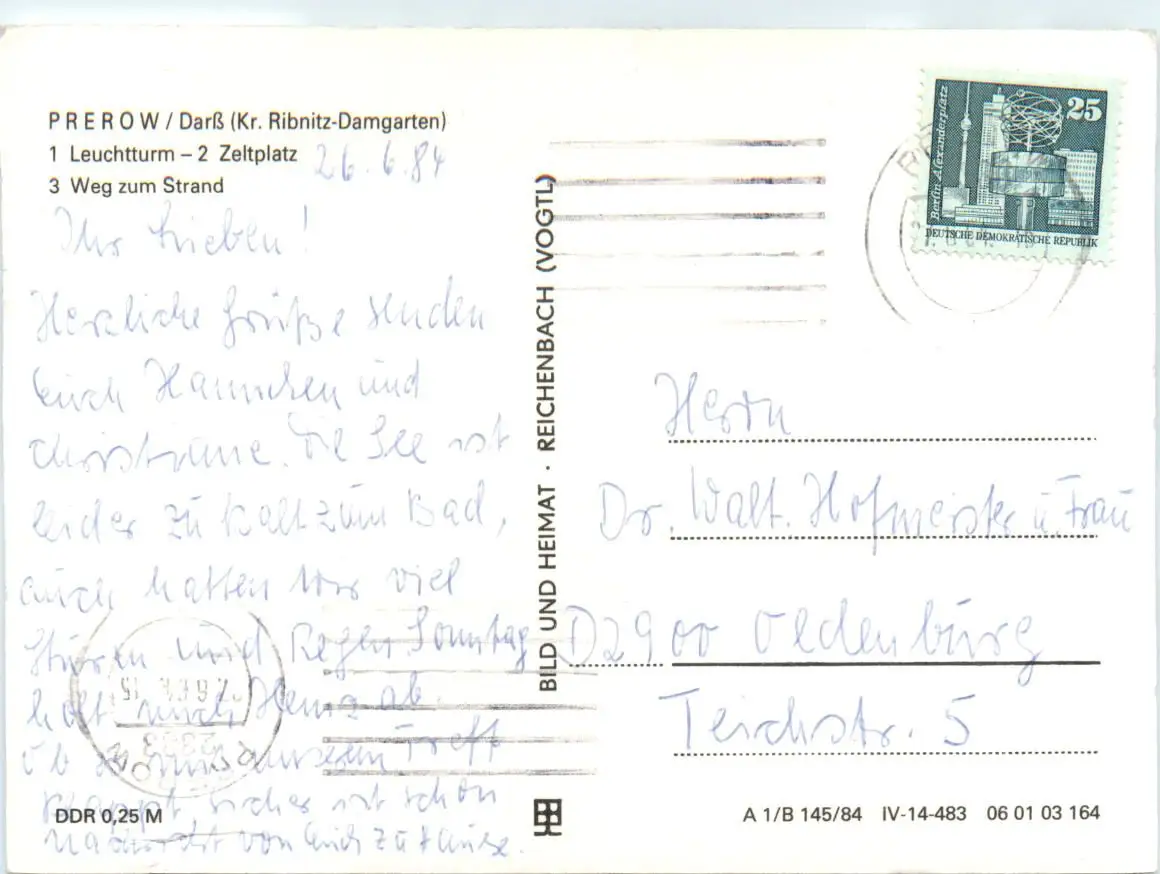 PREROW / Darß (Kr. Ribnitz-Damgarten)
1 Leuchtturm – 2 Zeltplatz
3 Weg zum Strand
26.6.84
Ihr Lieben!
Herzliche Grüße senden
Euch Hannchen und
Christiane. Die See ist
leider zu kalt zum Bad,
auch hatten wir viel
Sturm und Regen. Sonntag
holt mich Heinz ab.
Ob es mit unserem Treff
klappt, sicher ist schon
Nachricht von Euch zu Hause.
DDR 0,25 M
BILD UND HEIMAT · REICHENBACH (VOGTL)
Berlin-Alexanderplatz
25
DEUTSCHE DEMOKRATISCHE REPUBLIK
Herrn
Dr. Walt. Hofmeister u. Frau
D2900 Oldenburg
Teichstr. 5
A 1/B 145/84 IV-14-483 06 01 03 164